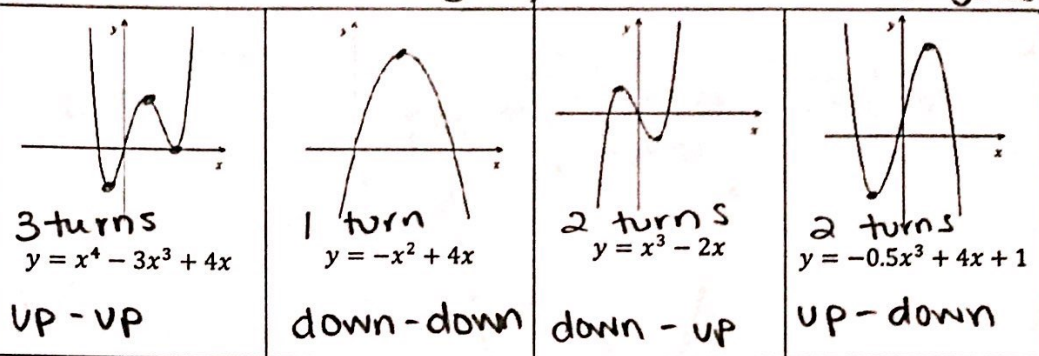 y
x
3 turns
y = x⁴ − 3x³ + 4x
up - up
y
x
1 turn
y = −x² + 4x
down - down
y
x
2 turns
y = x³ − 2x
down - up
y
x
2 turns
y = −0.5x³ + 4x + 1
up - down